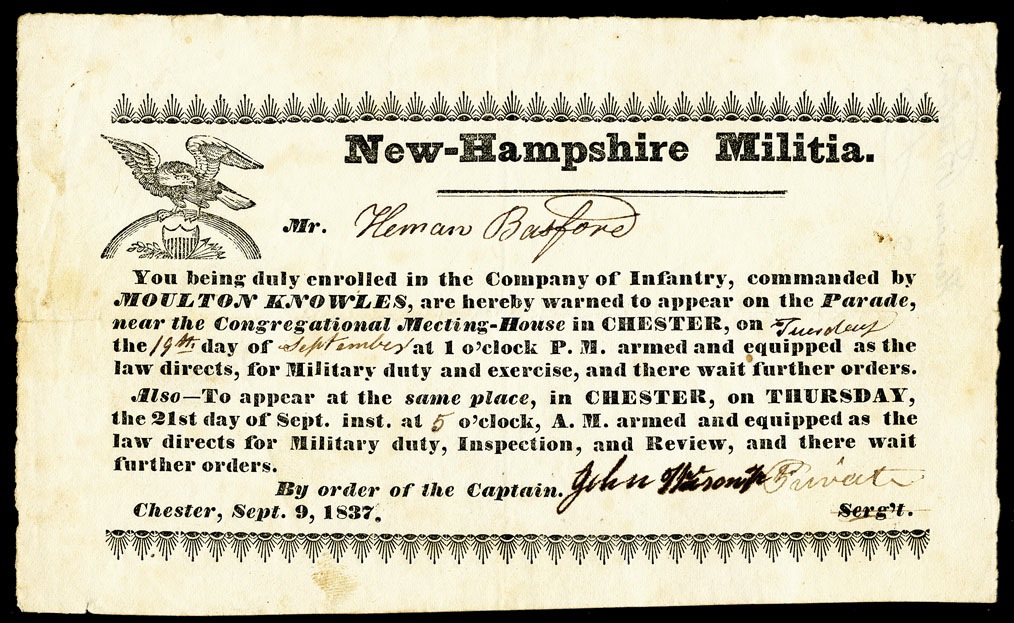 New-Hampshire Militia.
Mr. Heman Basford
You being duly enrolled in the Company of Infantry, commanded by
MOULTON KNOWLES, are hereby warned to appear on the Parade,
near the Congregational Meeting-House in CHESTER, on Tuesday
the 19th day of September at 1 o'clock P. M. armed and equipped as the
law directs, for Military duty and exercise, and there wait further orders.
Also—To appear at the same place, in CHESTER, on THURSDAY,
the 21st day of Sept. inst. at 5 o'clock, A. M. armed and equipped as the
law directs for Military duty, Inspection, and Review, and there wait
further orders.
By order of the Captain. John Private
Chester, Sept. 9, 1837. Serg't.